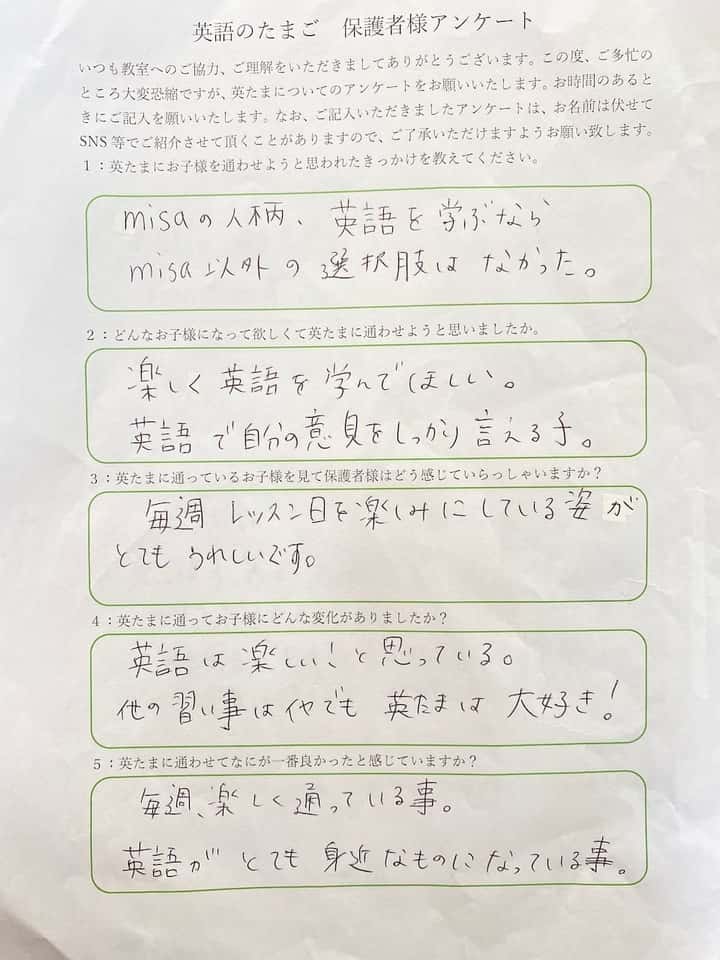 英語のたまご 保護者様アンケート
いつも教室へのご協力、ご理解をいただきましてありがとうございます。この度、ご多忙の
ところ大変恐縮ですが、英たまについてのアンケートをお願いいたします。お時間のあると
きにご記入を願いいたします。なお、ご記入いただきましたアンケートは、お名前は伏せて
SNS等でご紹介させて頂くことがありますので、ご了承いただけますようお願い致します。
1：英たまにお子様を通わせようと思われたきっかけを教えてください。
misaの人柄、英語を学ぶなら
misa以外の選択肢はなかった。
2：どんなお子様になって欲しくて英たまに通わせようと思いましたか。
楽しく英語を学んでほしい。
英語で自分の意見をしっかり言える子。
3：英たまに通っているお子様を見て保護者様はどう感じていらっしゃいますか？
毎週レッスン日を楽しみにしている姿が
とてもうれしいです。
4：英たまに通ってお子様にどんな変化がありましたか？
英語は楽しい！と思っている。
他の習い事はイヤでも英たまは大好き！
5：英たまに通わせてなにが一番良かったと感じていますか？
毎週、楽しく通っている事。
英語がとても身近なものになっている事。